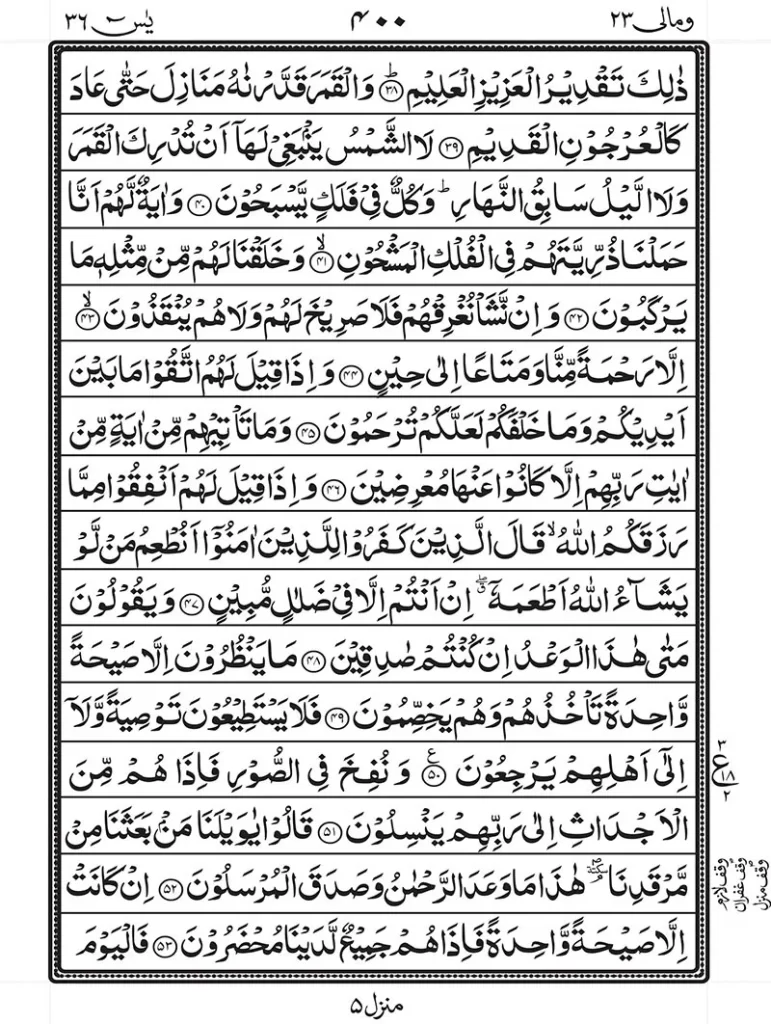 ومالی ۲۳
۴۰۰
یٰسٓ ۳۶
ذٰلِكَ تَقْدِيْرُ الْعَزِيْزِ الْعَلِيْمِ ؕ‏﴿۳۸﴾ وَالْقَمَرَ قَدَّرْنٰهُ مَنَازِلَ حَتّٰى عَادَ
كَالْعُرْجُوْنِ الْقَدِيْمِ ﴿۳۹﴾ لَا الشَّمْسُ يَنْۢبَغِىْ لَهَاۤ اَنْ تُدْرِكَ الْقَمَرَ
وَلَا الَّيْلُ سَابِقُ النَّهَارِ ؕ وَكُلٌّ فِىْ فَلَكٍ يَّسْبَحُوْنَ ﴿۴۰﴾ وَاٰيَةٌ لَّهُمْ اَنَّا
حَمَلْنَا ذُرِّيَّتَهُمْ فِى الْفُلْكِ الْمَشْحُوْنِ ۙ﴿۴۱﴾ وَخَلَقْنَا لَهُمْ مِّنْ مِّثْلِهٖ مَا
يَرْكَبُوْنَ ﴿۴۲﴾ وَاِنْ نَّشَاْ نُغْرِقْهُمْ فَلَا صَرِيْخَ لَهُمْ وَلَا هُمْ يُنْقَذُوْنَ ۙ﴿۴۳﴾
اِلَّا رَحْمَةً مِّنَّا وَمَتَاعًا اِلٰى حِيْنٍ ﴿۴۴﴾ وَاِذَا قِيْلَ لَهُمُ اتَّقُوْا مَا بَيْنَ
اَيْدِيْكُمْ وَمَا خَلْفَكُمْ لَعَلَّكُمْ تُرْحَمُوْنَ ﴿۴۵﴾ وَمَا تَاْتِيْهِمْ مِّنْ اٰيَةٍ مِّنْ
اٰيٰتِ رَبِّهِمْ اِلَّا كَانُوْا عَنْهَا مُعْرِضِيْنَ ﴿۴۶﴾ وَاِذَا قِيْلَ لَهُمْ اَنْفِقُوْا مِمَّا
رَزَقَكُمُ اللّٰهُ ۙ قَالَ الَّذِيْنَ كَفَرُوْا لِلَّذِيْنَ اٰمَنُوْۤا اَنُطْعِمُ مَنْ لَّوْ
يَشَآءُ اللّٰهُ اَطْعَمَهٗۤ ۖ ق اِنْ اَنْتُمْ اِلَّا فِىْ ضَلٰلٍ مُّبِيْنٍ ﴿۴۷﴾ وَيَقُوْلُوْنَ
مَتٰى هٰذَا الْوَعْدُ اِنْ كُنْتُمْ صٰدِقِيْنَ ﴿۴۸﴾ مَا يَنْظُرُوْنَ اِلَّا صَيْحَةً
وَّاحِدَةً تَاْخُذُهُمْ وَهُمْ يَخِصِّمُوْنَ ﴿۴۹﴾ فَلَا يَسْتَطِيْعُوْنَ تَوْصِيَةً وَّلَاۤ
اِلٰٓى اَهْلِهِمْ يَرْجِعُوْنَ ﴿۵۰﴾ع وَنُفِخَ فِى الصُّوْرِ فَاِذَا هُمْ مِّنَ
۳ ع ۱۸ ۲
الْاَجْدَاثِ اِلٰى رَبِّهِمْ يَنْسِلُوْنَ ﴿۵۱﴾ قَالُوْا يٰوَيْلَنَا مَنْۢ بَعَثَنَا مِنْ
مَّرْقَدِنَا ۘ ؄ هٰذَا مَا وَعَدَ الرَّحْمٰنُ وَصَدَقَ الْمُرْسَلُوْنَ ﴿۵۲﴾ اِنْ كَانَتْ
وقف لازم
وقف غفران
وقف منزل
اِلَّا صَيْحَةً وَّاحِدَةً فَاِذَا هُمْ جَمِيْعٌ لَّدَيْنَا مُحْضَرُوْنَ ﴿۵۳﴾ فَالْيَوْمَ
منزل ۵